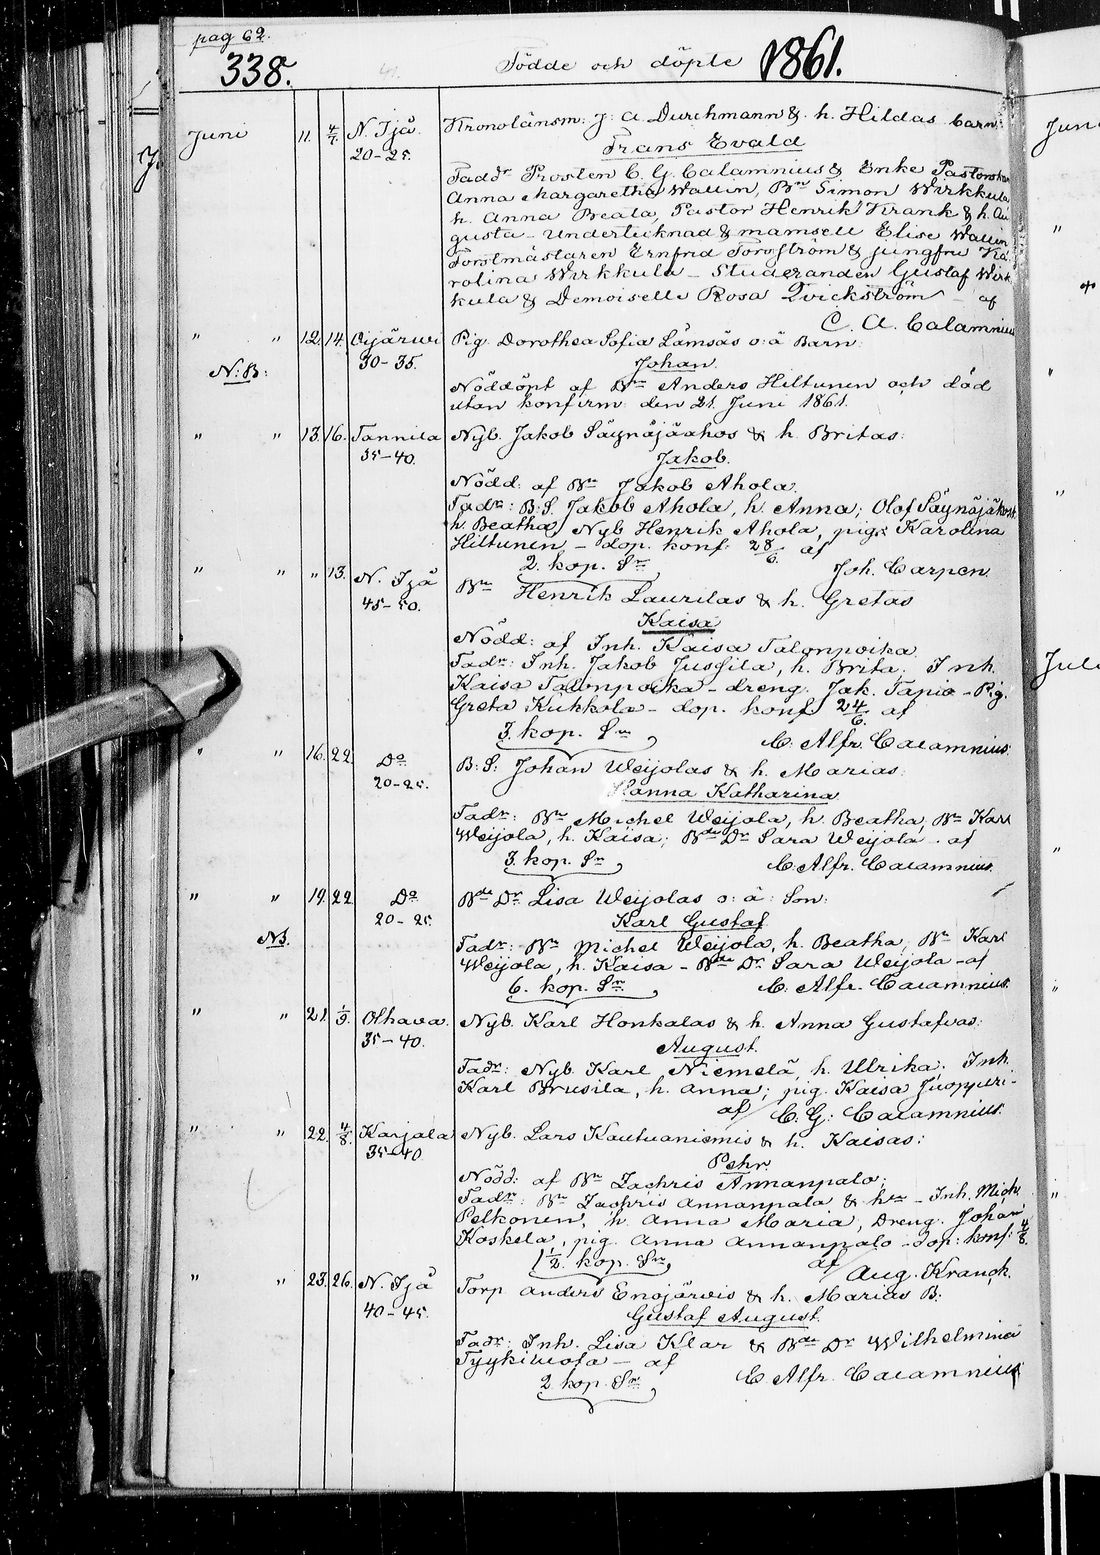 pag 62.
338. Födde och döpte 1861.
Juni 11. 4/7. N. Ijå Kronolänsm: J: A Durchmann & h. Hildas barn:
20-25. Frans Evald
Faddr Prosten C. G. Calamnius & Enke Pastorskan
Anna Margaretha Wallin, Bn Simon Wirkkula
h. Anna Beata, Pastor Henrik Krank & h. Au
gusta - Undertecknad & mamsell Elise Wallin
Forstmästaren Ernfrid Torsström & jungfru Ka
rolina Wirkkula - Studeranden Gustaf Wirk
kula & Demoiselle Rosa Qvickström - af
C. A. Calamnius
" " 12. 14. Oijärwi Pig. Dorothea Sofia Lämsäs o: ä Barn:
N:B: 30-35. Johan.
Nöddöpt af Bn Anders Hiltunen och död
utan konfirm: den 21. Juni 1861.
" " 13. 16. Tannila Nyb. Jakob Säynäjäahos & h. Britas:
35-40. Jakob.
Nödd: af Bn Jakob Ahola.
Fadr: B.S. Jakob Ahola, h. Anna; Olof Säynäjäkorst
h. Beatha; Nyb Henrik Ahola, pig: Karolina
Hiltunen - dop. konf. 28/6. af
2. kop. Sr Joh. Carpen.
" " " 13. N. Ijå Bn Henrik Laurilas & h. Gretas
45-50. Kaisa
Nödd: af Inh. Kaisa Talonpoika
Fadr: Inh. Jakob Jussila, h. Brita. Inh.
Kaisa Talonpoika - dreng. Jak. Tapio - Pig.
Greta Kukkola - dop. konf 24/6. af
3. kop. Sr C. Alfr. Calamnius.
" " 16. 22. Do B: S: Johan Weijolas & h. Marias:
20-25. Hanna Katharina
Fadr: Bn Michel Weijola, h. Beatha, Bn Karl
Weijola, h. Kaisa; Bde Dr Sara Weijola. af
3. kop. Sr C. Alfr. Calamnius.
" " 19. 22 Do Bde Dr Lisa Weijolas o: ä: Son:
20-25. Karl Gustaf
NB. Fadr: Bn Michel Weijola, h. Beatha, Bn Karl
Weijola, h. Kaisa - Bde Dr Sara Weijola - af
6. kop. Sr. C. Alfr. Calamnius.
" " 21. 1/9. Olhava Nyb. Karl Honkalas & h. Anna Gustafvas:
35-40. August.
Fadr: Nyb. Karl Niemelä, h. Ulrika; Inh.
Karl Brusila, h. Anna; pig. Kaisa Juoppuri-
af C. G. Calamnius.
" " 22. 4/8. Karjala Nyb. Lars Kautuaniemis & h. Kaisas:
35-40 Pehr.
Nödd: af Bn Zachris Annanpalo;
Fadr: Bn Zachris Annanpala & hn - Inh. Mich.
Pelkonen, h. Anna Maria, Dreng. Johan
Koskela, pig. Anna Annanpalo - dop: konf: 4/8.
1 1/2. kop. Sr, af Aug. Kranck.
" " 23. 26. N. Ijå Torp Anders Enojärvis & h. Marias B:
40-45. Gustaf August.
Fadr: Inh. Lisa Klar & Bde Dr Wilhelmina
af
2 kop. Sr C Alfr. Calamnius
Juni
Juli